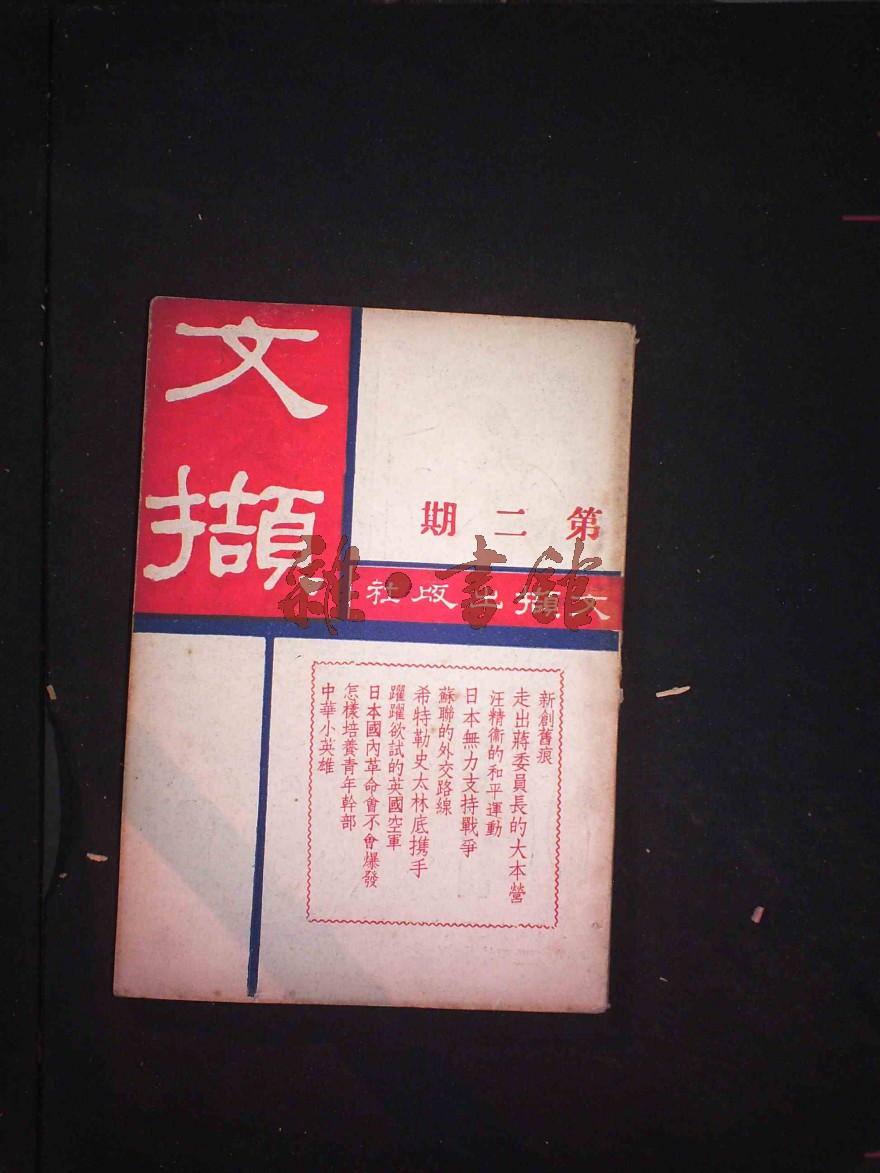 文擷
第二期
文擷出版社
新創舊痕
走出蔣委員長的大本營
汪精衞的和平運動
日本無力支持戰爭
蘇聯的外交路線
希特勒史太林底携手
躍躍欲試的英國空軍
日本國內革命會不會爆發
怎樣培養青年幹部
中華小英雄
雜·書館